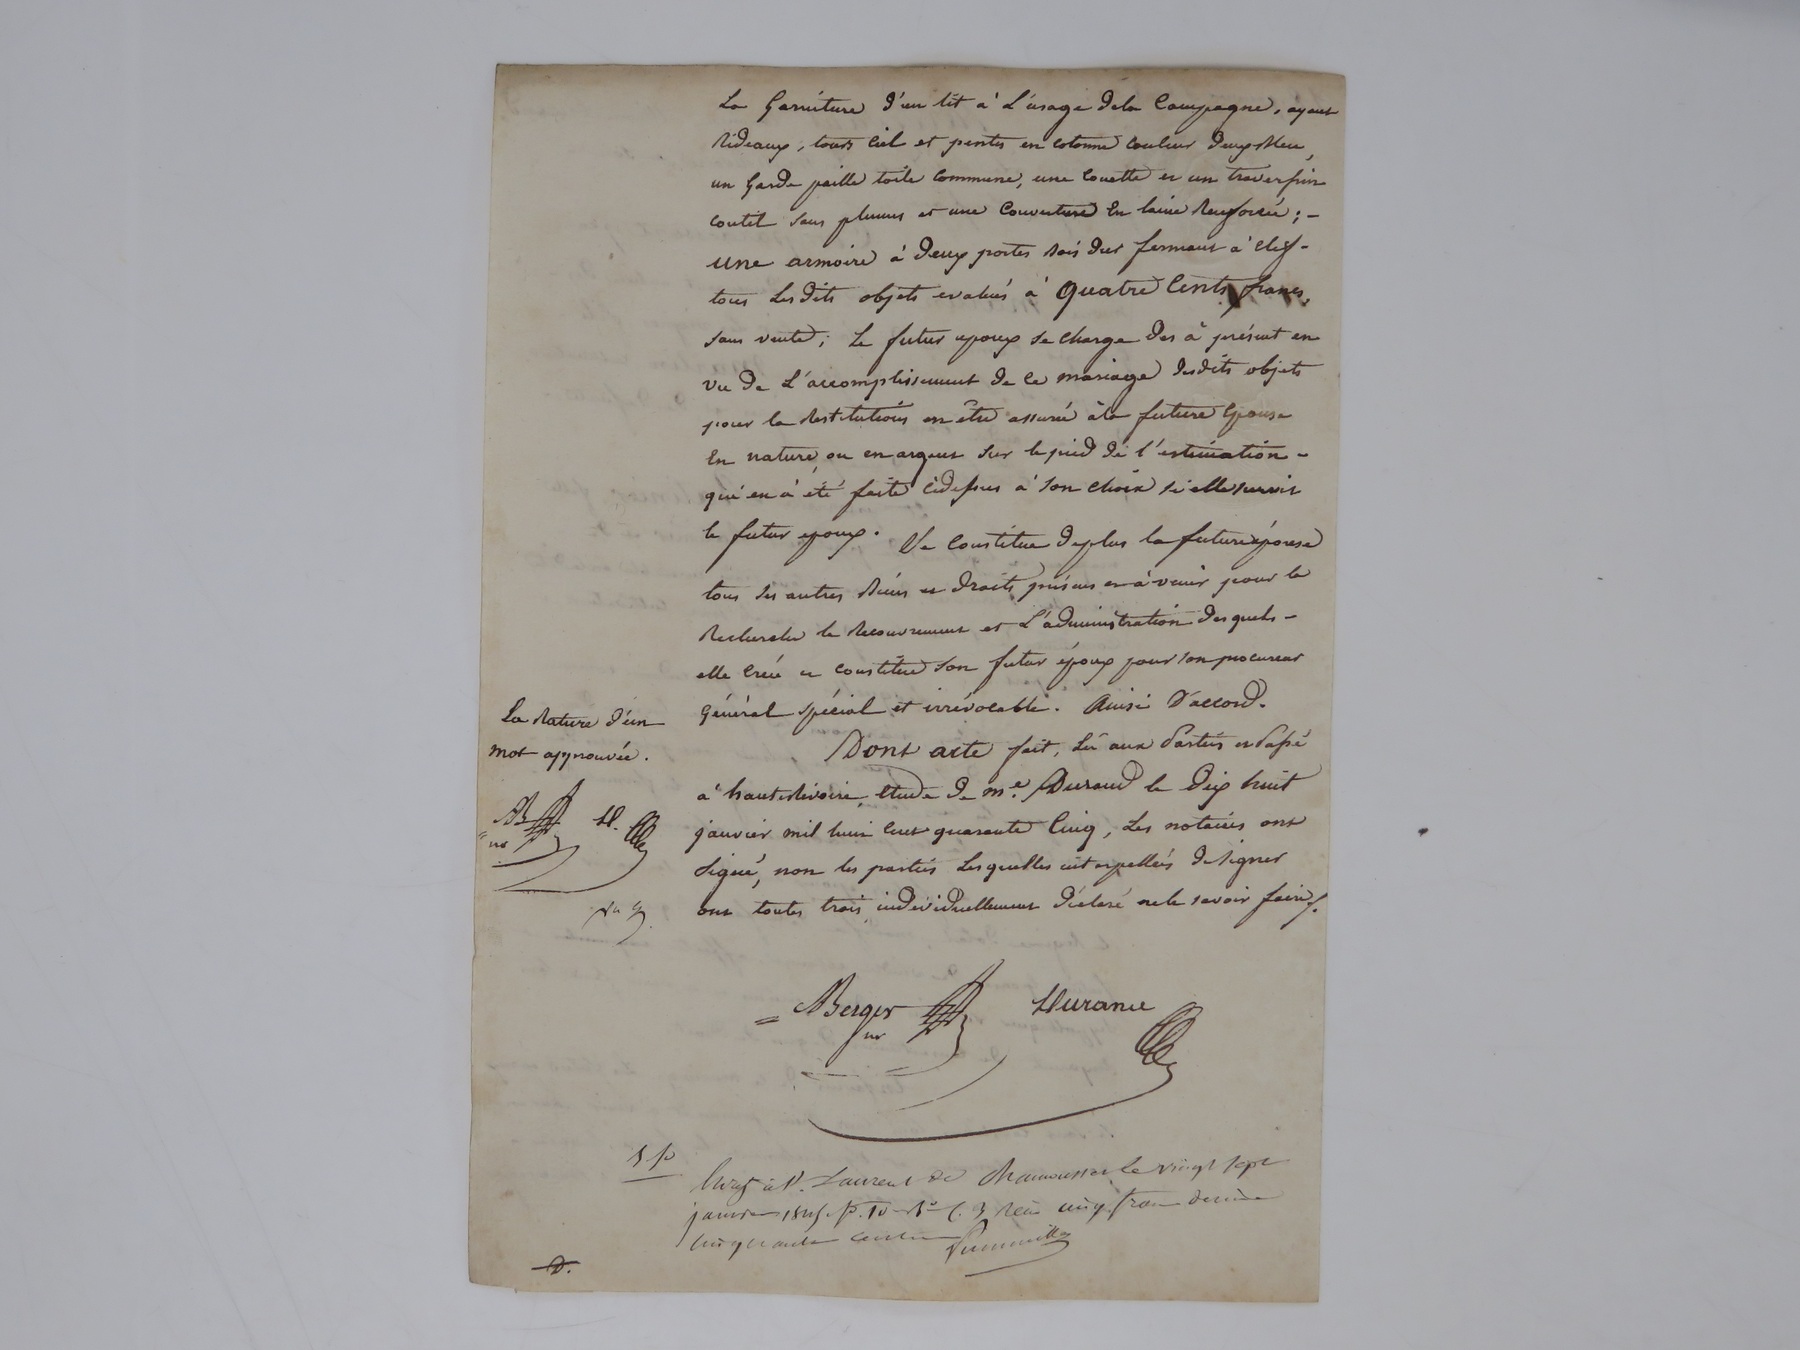 La Garniture d'un lit à L'usage dela Campagne, ayant
Rideaux, tours Ciel et pentes en cotonne couleur
un Garde paille toile Commune, une Couette et un traversin
coutil sans plumes et une Couverture En laine Renforcée ; -
une armoire à deux portes bois dur fermant à Clef -
tous Lesdits objets evalués à quatre Cents francs,
sans vente ; Le futur epoux se charge Des à présent en
vu De L'accomplissement De ce mariage desdits objets
pour la Restitution en être assurée àla future Epouse
En nature ou en argent sur le pied de l'estimation -
qui en à été faite Cidessus à son choix si elle survit
le futur epoux. Se Constitue deplus la future épouse
tous ses autres Biens et Droits présens et à venir pour la
Recherche le Recouvrement et L'administration desquels -
elle Créé et constitue son futur époux pour son procureur
Général Spécial et irrévocable. Ainsi D'accord.
La Rature d'un
mot approuvée.
Dont acte fait, Lu aux Parties et Passé
à hauterivoire, Etude De me. Durand le Dix huit
janvier mil huit cent quarante Cinq, Les notaires ont
signé, non les parties Lesquelles interpellées de signer
ont toutes trois individuellement déclaré nele savoir faire.
AB D.
nre
Berger Durand
nre
Enregt à St. Laurent de Chamousset le vingt sept
janvier 1845 fo. 10 Ro C. 3 Reçu cinq francs decime
cinquante centimes
D.